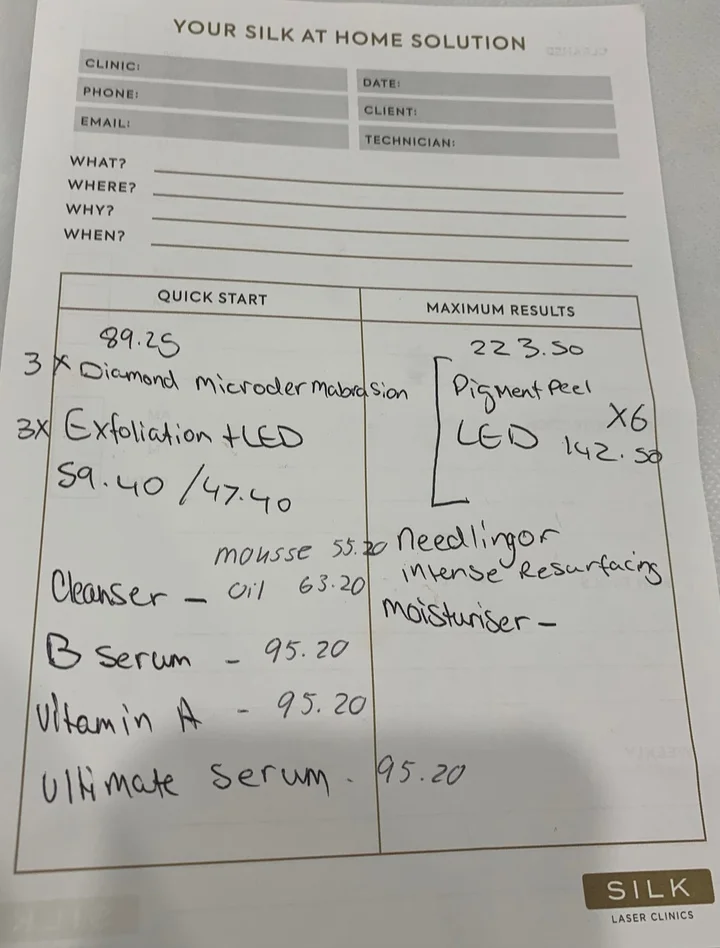 YOUR SILK AT HOME SOLUTION
CLINIC:
PHONE:
EMAIL:
DATE:
CLIENT:
TECHNICIAN:
WHAT?
WHERE?
WHY?
WHEN?
QUICK START
89.25
3 x Diamond microdermabrasion
3x Exfoliation + LED
59.40 / 47.40
mousse 55.20
Cleanser - oil 63.20
B serum - 95.20
Vitamin A - 95.20
Ultimate serum - 95.20
MAXIMUM RESULTS
223.50
Pigment Peel
X6
LED 142.50
needling or
intense Resurfacing
moisturiser -
SILK
LASER CLINICS